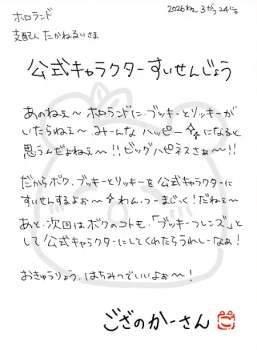 2026ねん 3がつ 24にち
ホロランド
支配人 たかねるいさま
公式キャラクターすいせんじょう
あのねぇ〜 ホロランドに ブッキーとリッキーが
いたらねぇ〜 みーんな ハッピー になると
思うんだよねぇ〜!!ビッグハピネスさぁ〜!!
だからボク、ブッキーとリッキーを公式キャラクターに
すいせんするよぉ〜 わん・つーまじっく!だねぇ〜
あと、次回はボクのコトも、「ブッキーフレンズ」と
して公式キャラクターにしてくれたらうれしーなぁ!
おきゅうりょう、はちみつでいいよぉ〜!
ござのかーさん